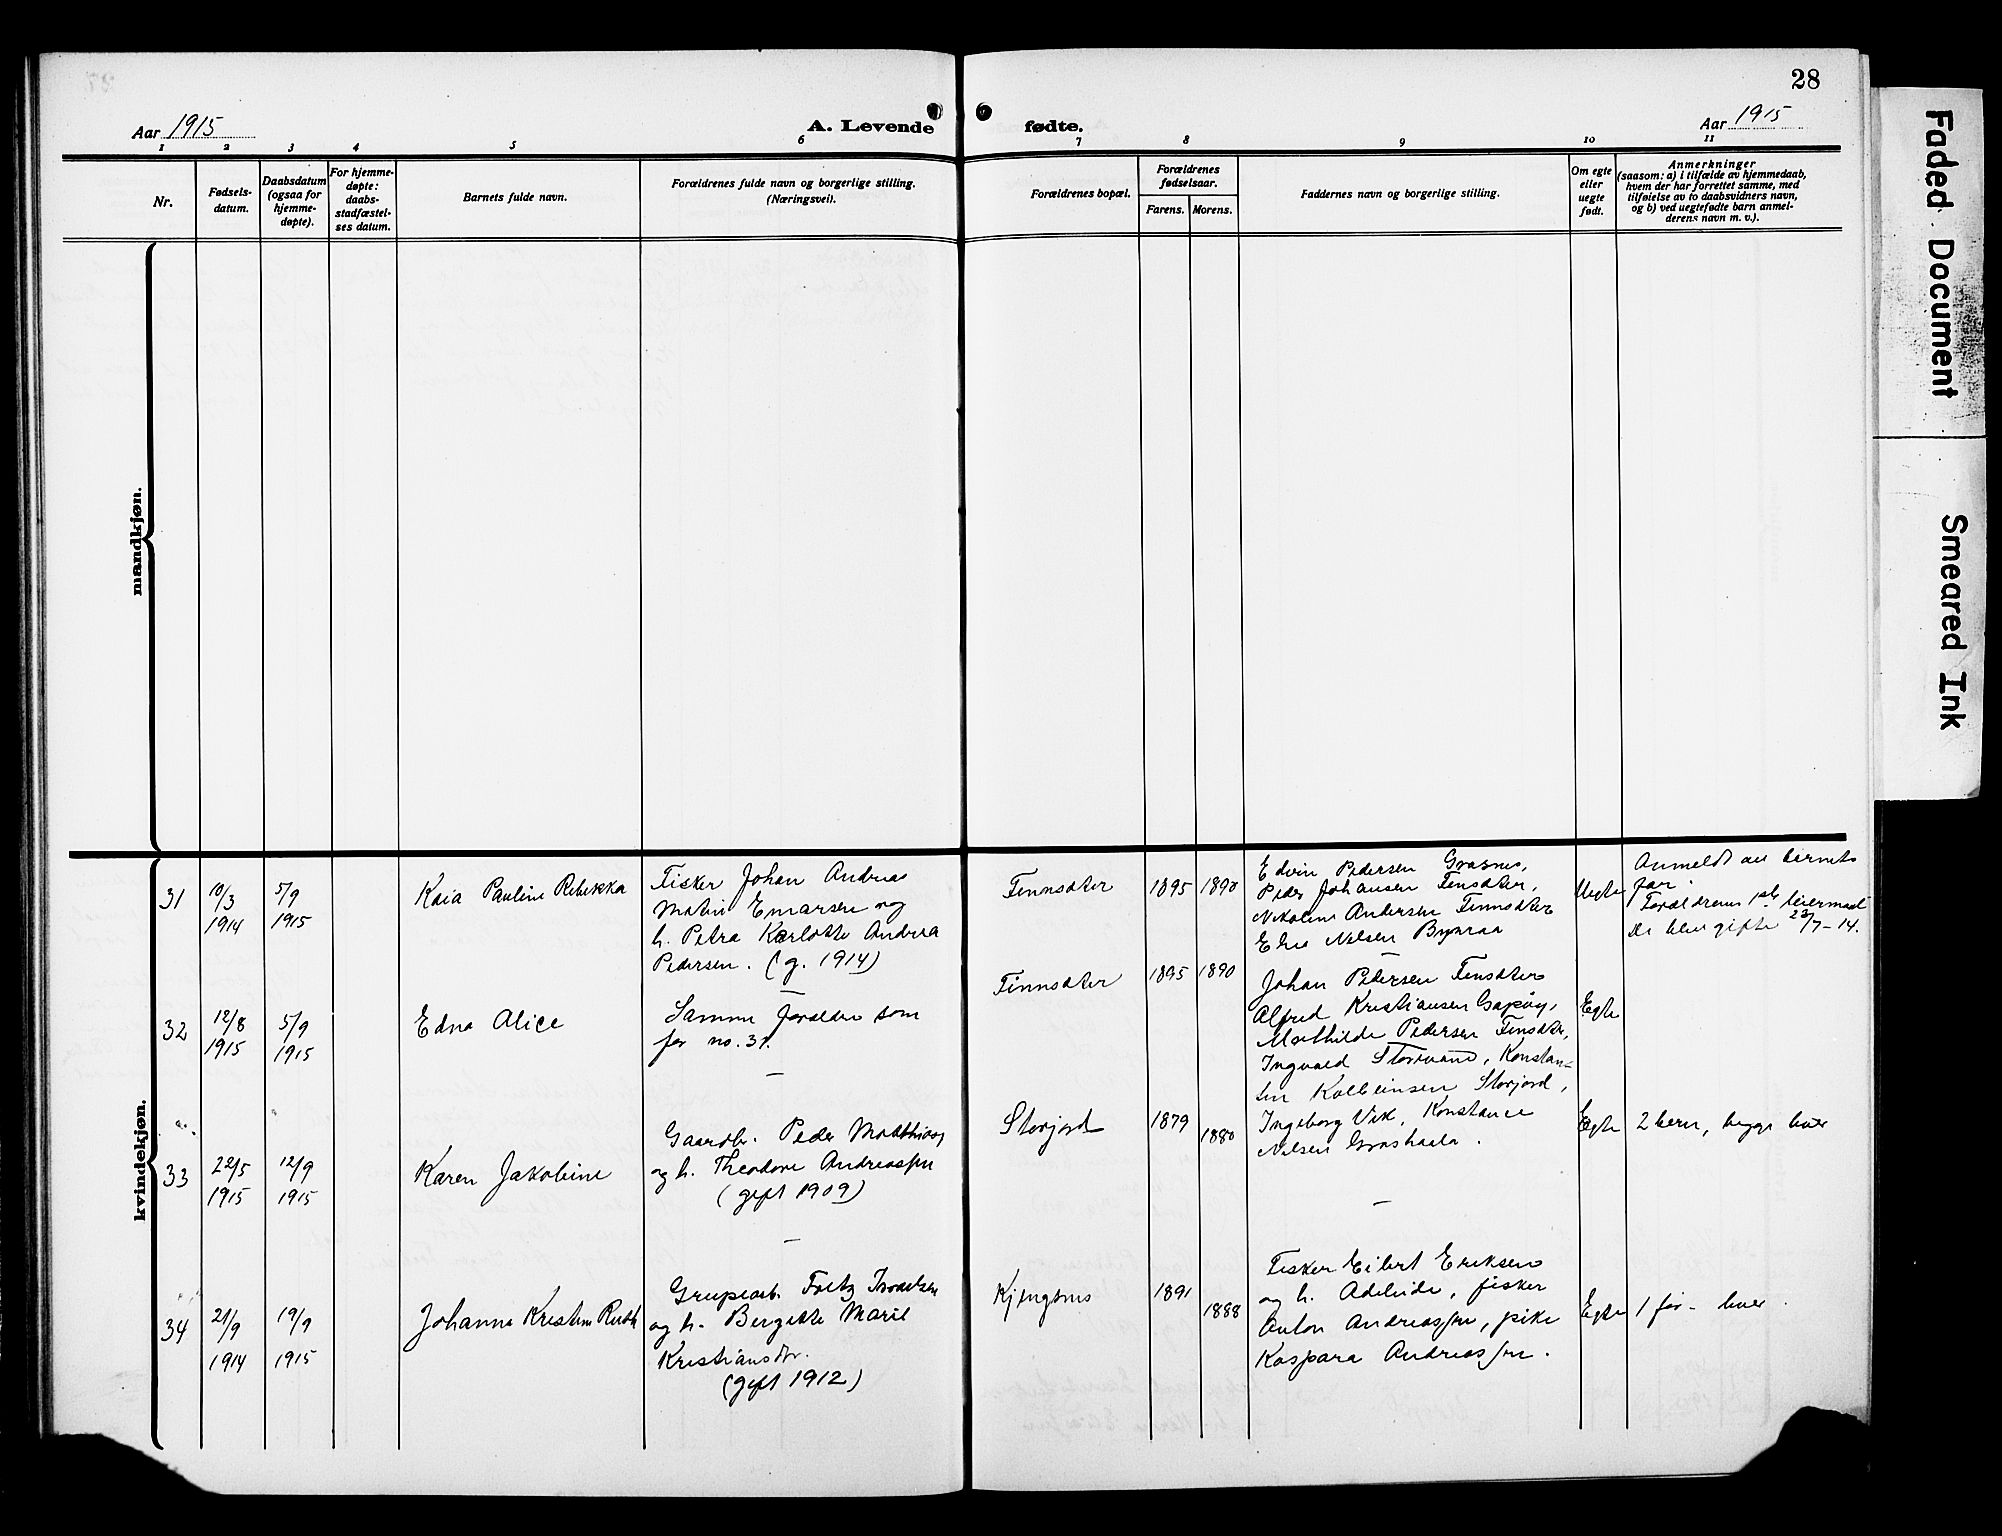 28
Aar 1915
A. Levende
fødte.
Aar 1915
1 2 3 4 5 6 7 8 9 10 11
Nr.
Fødsels-
datum.
Daabsdatum
(ogsaa for
hjemme-
døpte).
For hjemme-
døpte:
daabs-
stadfæstel-
ses datum.
Barnets fulde navn.
Forældrenes fulde navn og borgerlige stilling.
(Næringsvei).
Forældrenes bopæl.
Forældrenes
fødselsaar.
Farens. Morens.
Faddernes navn og borgerlige stilling.
Om egte
eller
uegte
født.
Anmerkninger
(saasom: a) i tilfælde av hjemmedaab,
hvem der har forrettet samme, med
tilføielse av to daabsvidners navn,
og b) ved uegtefødte barn anmel-
derens navn m. v.).
mandkjøn.
kvindekjøn.
31
10/3
1914
5/9
1915
Kaia Pauline Rebekka
Fisker Johan Andreas
Martin Emarsen og
h. Petra Karlotte Andrea
Pedersen. (g. 1914)
Finnsæter
1895
1890
Edvin Pedersen
Peder Johansen Finsæter,
Nikoline Andersen Finnsæter
Nilsen
Uegte
Anmeldt av barnets
far.
Forældrenes 1ste leiermaal
De blev gifte 23/7-14.
32
12/8
1915
5/9
1915
Edna Alice
Samme forældre som
for no. 31.
Finnsæter
1895
1890
Johan Pedersen Finsæter
Alfred Kristiansen
Mathilde Pedersen Finsæter,
Ingvald
Kolbeinsen Storjord,
Ingeborg Vik, Konstance
Nilsen
Egte
33
22/5
1915
12/9
1915
Karen Jakobine
Gaardbr. Peder Matthias
og h. Theodore Andreassen
(gift 1909)
Storjord
1879
1880
Egte
2 barn, begge lever
34
21/9
1914
19/9
1915
Johanna Kristine Ruth
Grubearb. Fritz Israelsen
og h. Bergitte Marie
Kristiansdtr.
(gift 1912)
Kjengsnes
1891
1888
Fisker Eilert Eriksen
og h. Adeleide, fisker
Anton Andreassen, pike
Kaspara Andreassen.
Egte
1 før - lever.
Faded Document
Smeared Ink